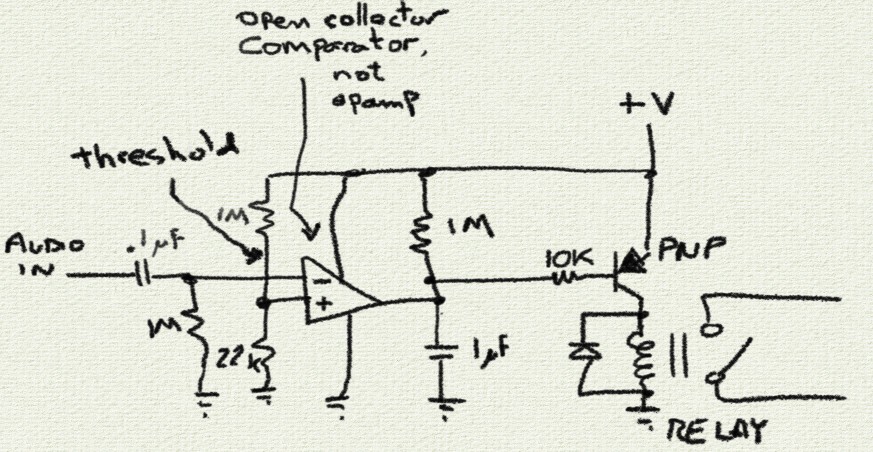 open collector
Comparator,
not
opamp
+V
threshold
1M
1M
AUDIO
IN
.1µF
10K
PNP
1M
22k
1µF
RELAY